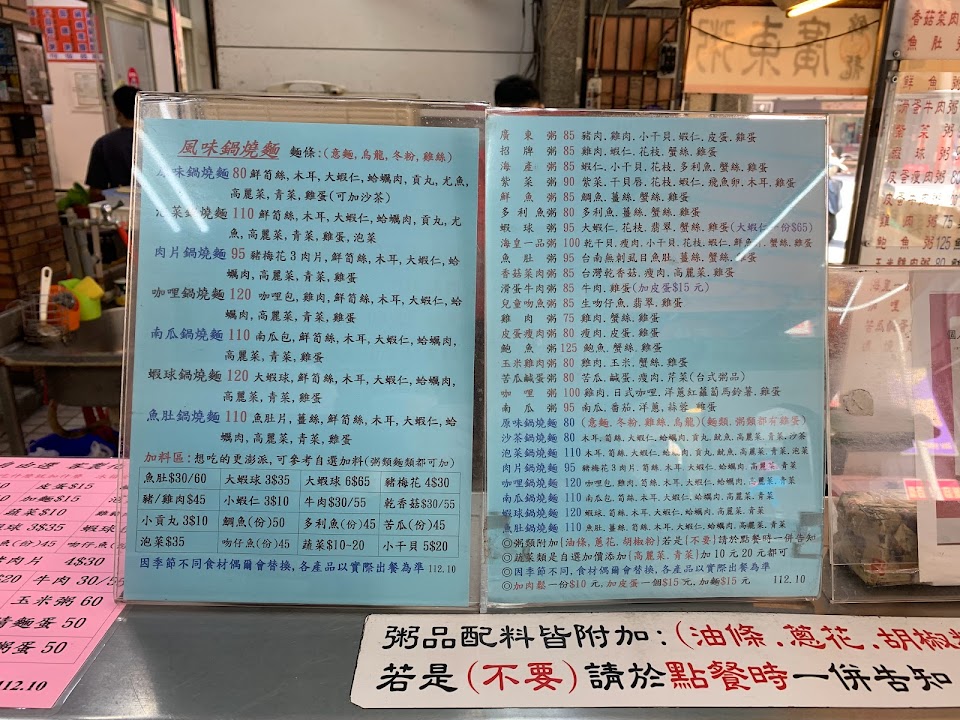 廣東粥
風味鍋燒麵 麵條:(意麵,烏龍,冬粉,雞絲)
原味鍋燒麵 80 鮮筍絲,木耳,大蝦仁,蛤蠣肉,貢丸,尤魚,
高麗菜,青菜,雞蛋(可加沙茶)
泡菜鍋燒麵 110 鮮筍絲,木耳,大蝦仁,蛤蠣肉,貢丸,尤
魚,高麗菜,青菜,雞蛋,泡菜
肉片鍋燒麵 95 豬梅花3肉片,鮮筍絲,木耳,大蝦仁,蛤
蠣肉,高麗菜,青菜,雞蛋
咖哩鍋燒麵 120 咖哩包,雞肉,鮮筍絲,木耳,大蝦仁,蛤
蠣肉,高麗菜,青菜,雞蛋
南瓜鍋燒麵 110 南瓜包,鮮筍絲,木耳,大蝦仁,蛤蠣肉,
高麗菜,青菜,雞蛋
蝦球鍋燒麵 120 大蝦球,鮮筍絲,木耳,大蝦仁,蛤蠣肉,
高麗菜,青菜,雞蛋
魚肚鍋燒麵 110 魚肚片,薑絲,鮮筍絲,木耳,大蝦仁,蛤
蠣肉,高麗菜,青菜,雞蛋
加料區:想吃的更澎派,可參考自選加料(粥類麵類都可加)
魚肚$30/60 大蝦球3$35 大蝦球6$65 豬梅花4$30
豬/雞肉$45 小蝦仁3$10 牛肉$30/55 乾香菇$30/55
小貢丸3$10 鯛魚(份)50 多利魚(份)45 苦瓜(份)45
泡菜$35 吻仔魚(份)45 蔬菜$10~20 小干貝5$20
因季節不同食材偶爾會替換,各產品以實際出餐為準 112.10
廣東粥 85 豬肉.雞肉.小干貝.蝦仁.皮蛋.雞蛋
招牌粥 85 雞肉.蝦仁.花枝.蟹絲.雞蛋
海產粥 85 蝦仁.小干貝.花枝.多利魚.蟹絲.雞蛋
紫菜粥 90 紫菜.干貝唇.花枝.蝦仁.飛魚卵.木耳.雞蛋
鮮魚粥 85 鯛魚.薑絲.蟹絲.雞蛋
多利魚粥 80 多利魚.薑絲.蟹絲.雞蛋
蝦球粥 95 大蝦仁.花枝.翡翠.蟹絲.雞蛋(大蝦仁一份$65)
海皇一品粥 100 乾干貝.瘦肉.小干貝.花枝.蝦仁.鮮魚片.蟹絲.雞蛋
魚肚粥 95 台南無刺虱目魚肚.薑絲.蟹絲.雞蛋
香菇菜肉粥 85 台灣乾香菇.瘦肉.高麗菜.雞蛋
滑蛋牛肉粥 85 牛肉.雞蛋(加皮蛋$15元)
兒童吻魚粥 85 生吻仔魚.翡翠.雞蛋
雞肉粥 75 雞肉.蟹絲.雞蛋
皮蛋瘦肉粥 80 瘦肉.皮蛋.雞蛋
鮑魚粥 125 鮑魚.蟹絲.雞蛋
玉米雞肉粥 80 雞肉.玉米.蟹絲.雞蛋
苦瓜鹹蛋粥 80 苦瓜.鹹蛋.瘦肉.芹菜(台式粥品)
咖哩粥 100 雞肉.日式咖哩.洋蔥紅蘿蔔馬鈴薯.雞蛋
南瓜粥 95 南瓜.番茄.洋蔥.蒜蓉.雞蛋
原味鍋燒麵 80 (意麵,冬粉,雞絲,烏龍)(麵類.粥類都有雞蛋)
沙茶鍋燒麵 80 木耳.筍絲.大蝦仁.蛤蠣肉.貢丸.魷魚.高麗菜.青菜.沙茶
泡菜鍋燒麵 110 木耳.筍絲.大蝦仁.蛤蠣肉.貢丸.魷魚.高麗菜.青菜.泡菜
肉片鍋燒麵 95 豬梅花3肉片.筍絲.木耳.大蝦仁.蛤蠣肉.高麗菜.青菜
咖哩鍋燒麵 120 咖哩包.雞肉.筍絲.木耳.大蝦仁.蛤蠣肉.高麗菜.青菜
南瓜鍋燒麵 110 南瓜包.筍絲.木耳.大蝦仁.蛤蠣肉.高麗菜.青菜
蝦球鍋燒麵 120 蝦球.筍絲.木耳.大蝦仁.蛤蠣肉.高麗菜.青菜
魚肚鍋燒麵 110 魚肚.薑絲.筍絲.木耳.大蝦仁.蛤蠣肉.高麗菜.青菜
◎粥類附加(油條.蔥花.胡椒粉)若是(不要)請於點餐時一併告知
◎蔬菜類是自選加價添加(高麗菜.青菜)加10元20元都可
◎因季節不同,食材偶爾會替換,各產品以實際出餐為準
◎加肉鬆一份$10元.加皮蛋一個$15元.加麵$15元 112.10
皮蛋$15
加麵$15
蔬菜$10
蝦球3$35
肉片 4$30
$20 牛肉 30/55
玉米粥 60
麵蛋 50
粥蛋 50
112.10
粥品配料皆附加:(油條.蔥花.胡椒
若是(不要)請於點餐時一併告知
香菇菜肉
魚肚粥
鮮魚粥
滑蛋牛肉粥
紫菜粥
蝦球粥
皮蛋瘦肉粥 80
雞肉粥 75
鮑魚粥 125
玉米雞肉粥 80